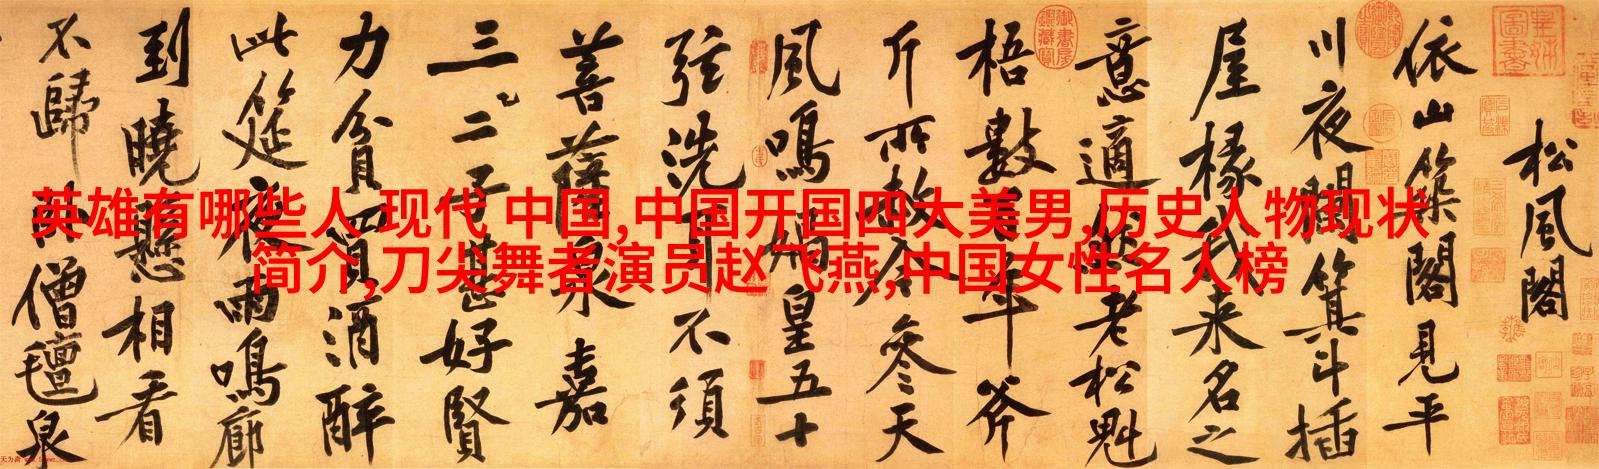 英雄有哪些人 现代 中国,中国开国四大美男,历史人物现状
简介,刀尖舞者演员赵飞燕,中国女性名人榜
松風閣
依山築閣見平
川夜闌箕斗插
屋椽我来名之
意適然老松魁
梧數百年斧
斤所赦今參天
風鳴媧皇五十
弦洗耳不須
菩薩泉嘉
三二子甚好賢
力貧買酒醉
此筵夜雨鳴廊
到曉懸相看
不歸臥僧氈泉
皇姊圖書
御書房鑑藏寶